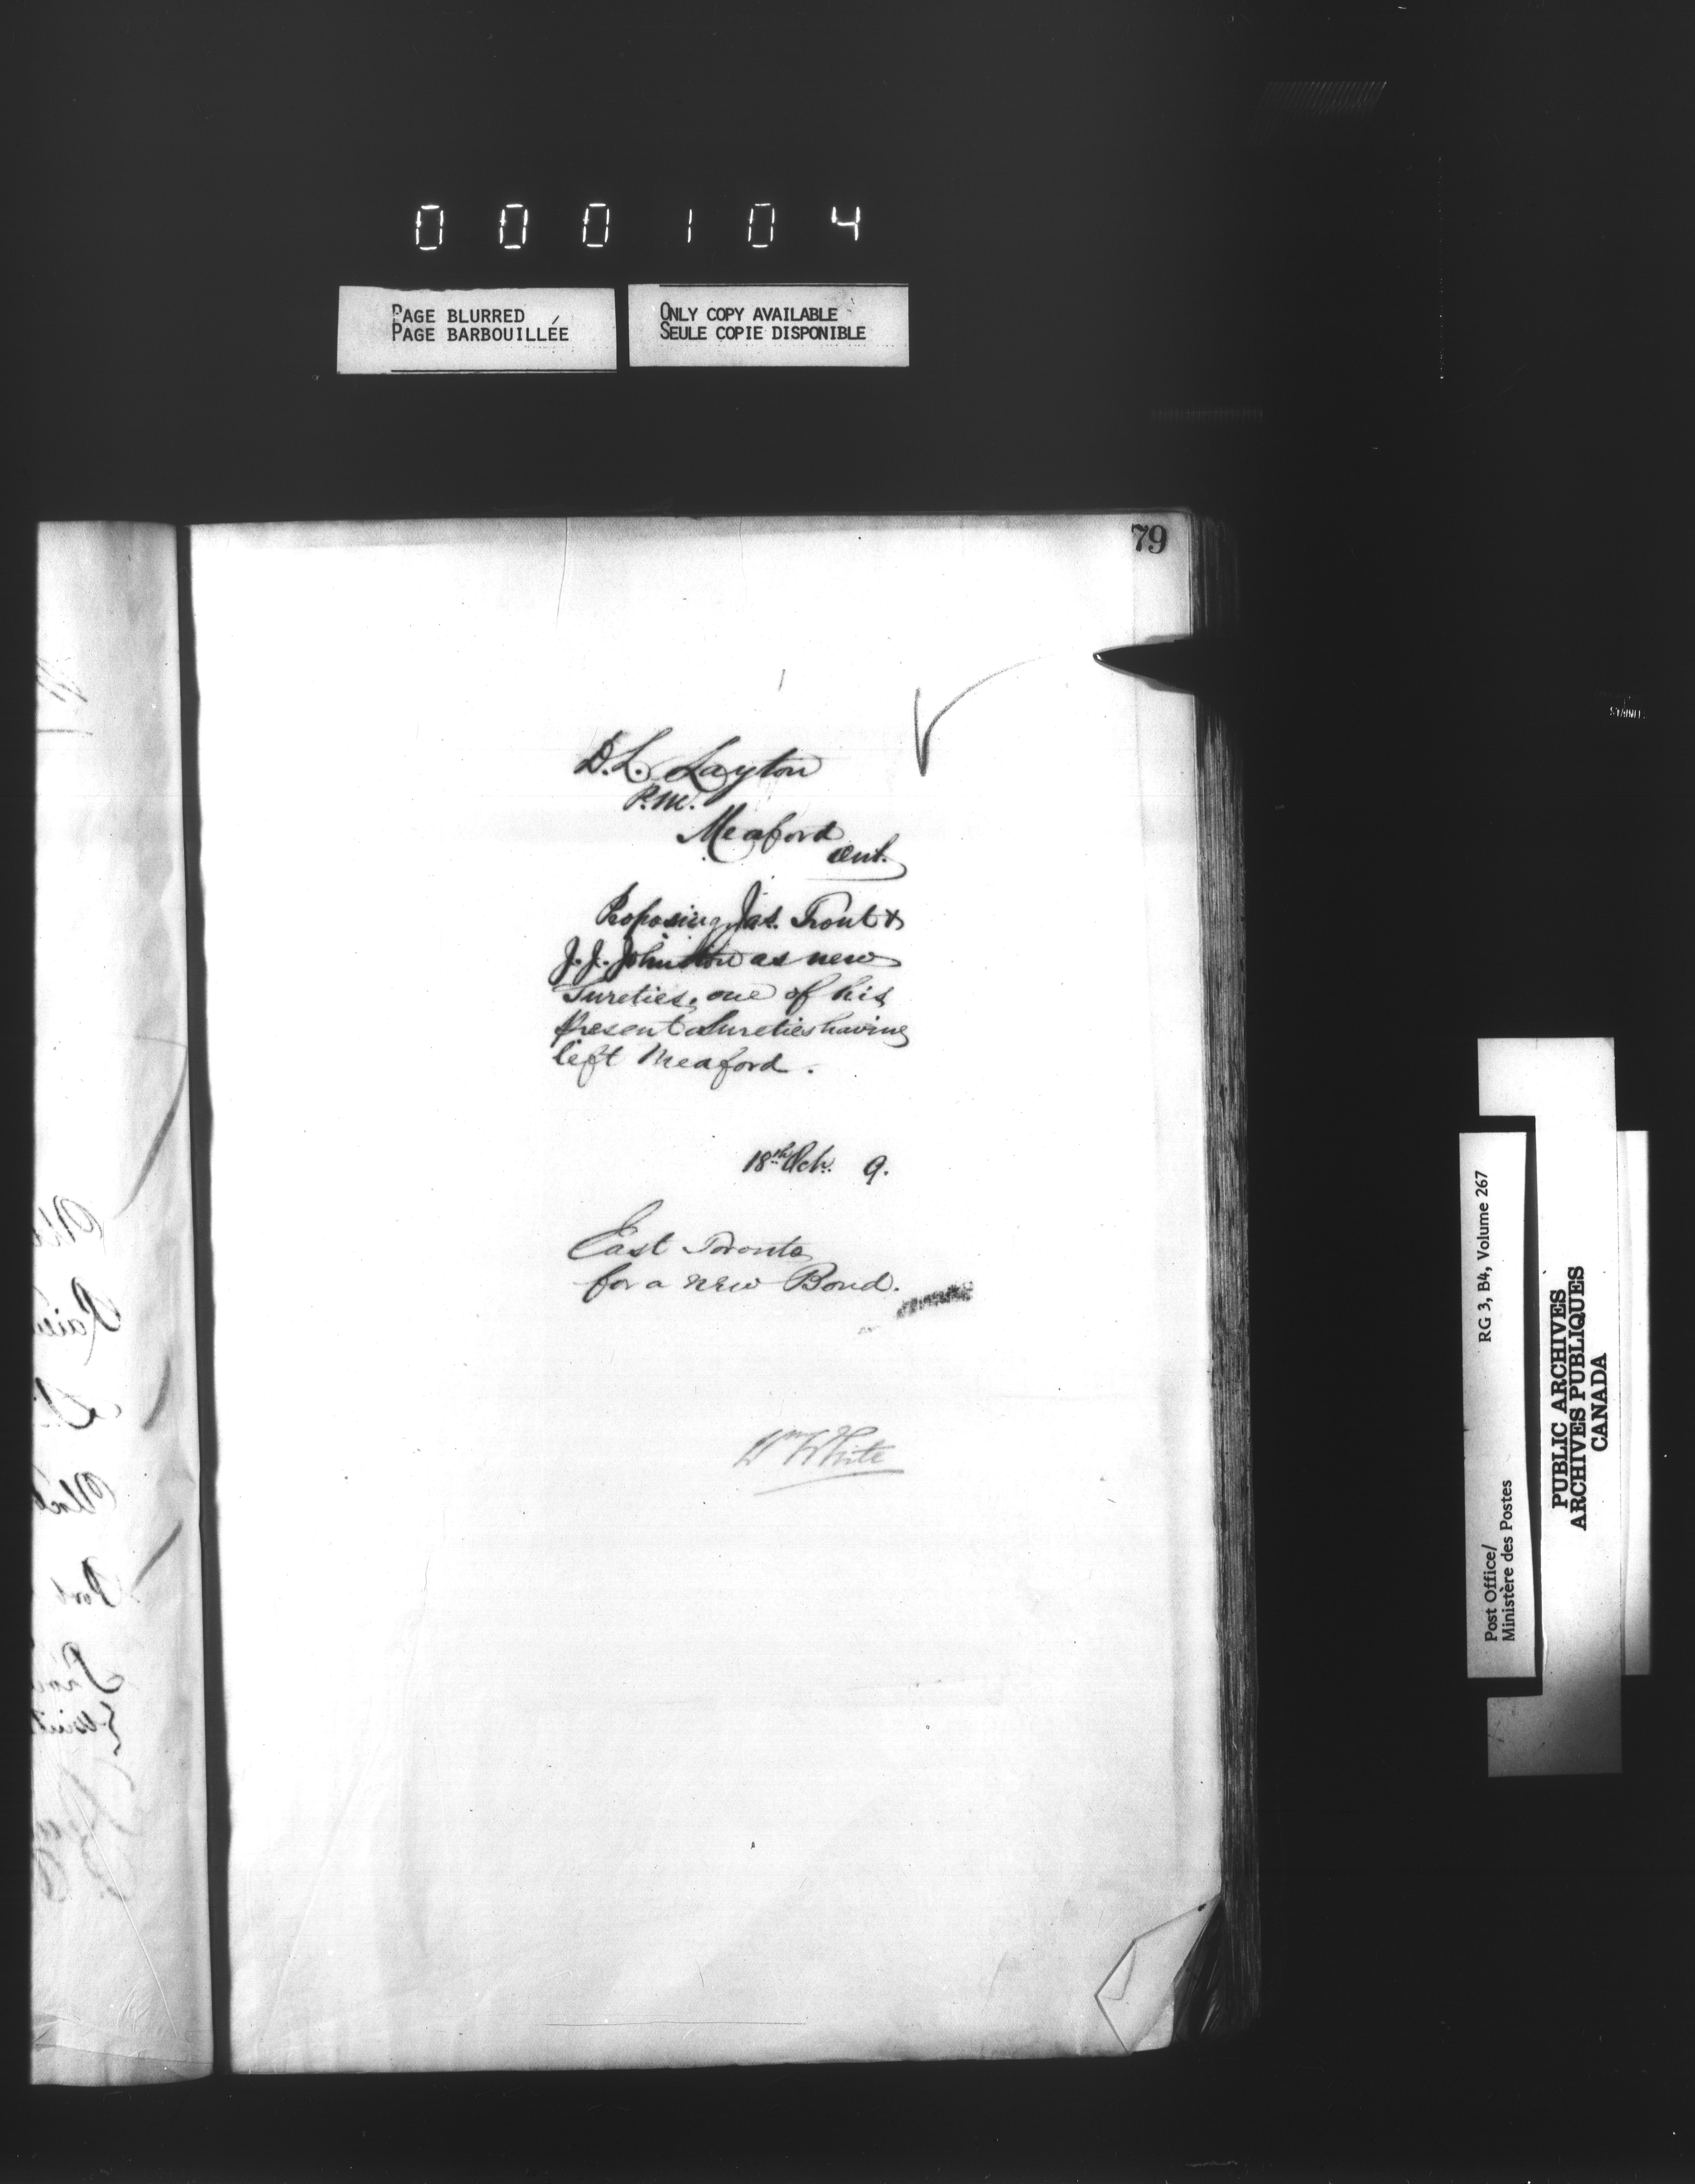 000104
PAGE BLURRED
PAGE BARBOUILLÉE
ONLY COPY AVAILABLE
SEULE COPIE DISPONIBLE
79
D.L. Layton
P.M.
Meaford
Ont.
Proposing Jas. Trout &
J.J. Johnston as new
Sureties, one of his
present Sureties having
left Meaford.
18th Oct. 9.
East Toronto
for a new Bond.
Wm White
RG 3, B4, Volume 267
Post Office/
Ministère des Postes
PUBLIC ARCHIVES
ARCHIVES PUBLIQUES
CANADA